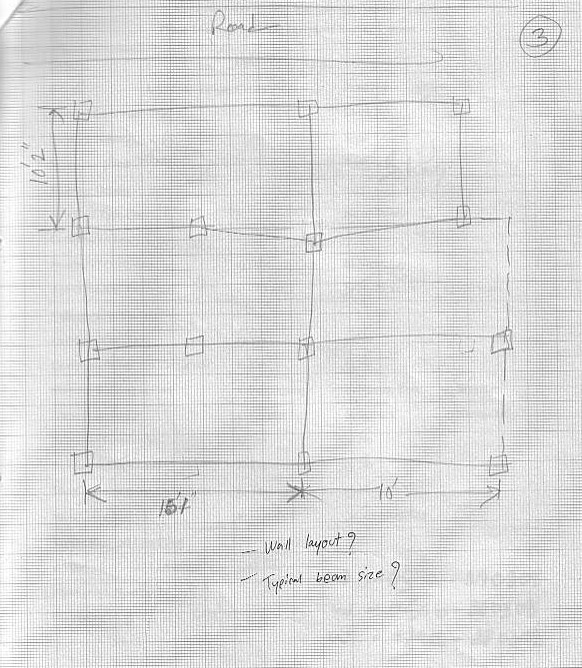 Road
3
10'2"
10'
- Wall layout?
- Typical beam size?